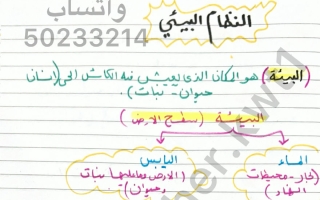 النظام البيئي
واتساب
50233214
(البيئة) هو المكان الذي يعيش فيه الكائن الحي (إنسان
حيوان - نبات).
البيئة (سطح الارض)
الماء
(بحار - محيطات
انهار)
اليابس
(الارض وما عليها من نبات
وحيوان)